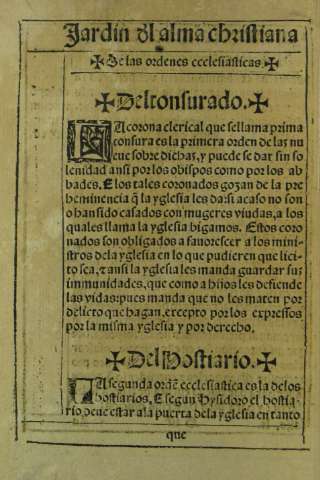 Jardin dl alma christiana
✠ De las ordenes ecclesiasticas. ✠
✠ Del tonsurado. ✠
LA corona clerical que se llama prima
tonsura es la primera orden de las nu
eue sobre dichas, y puede se dar sin so
lenidad ansi por los obispos como por los ab
bades. E los tales coronados gozan de la pre
heminencia q̃ la yglesia les da: si acaso no son
o han sido casados con mugeres viudas, a los
quales llama la yglesia bigamos. Estos coro
nados son obligados a fauorescer a los mini-
stros dela yglesia en lo que pudieren que lici-
to sea, & ansi la yglesia les manda guardar sus
immunidades, que como a hijos les defiende
las vidas: pues manda que no les maten por
delicto que hagan, excepto por los expressos
por la misma yglesia y por derecho.
✠ Del Hostiario. ✠
LA segunda ordẽ ecclesiastica es la de los
hostiarios. E segun Hysidoro el hostia-
rio deue estar a la puerta de la yglesia en tanto
que